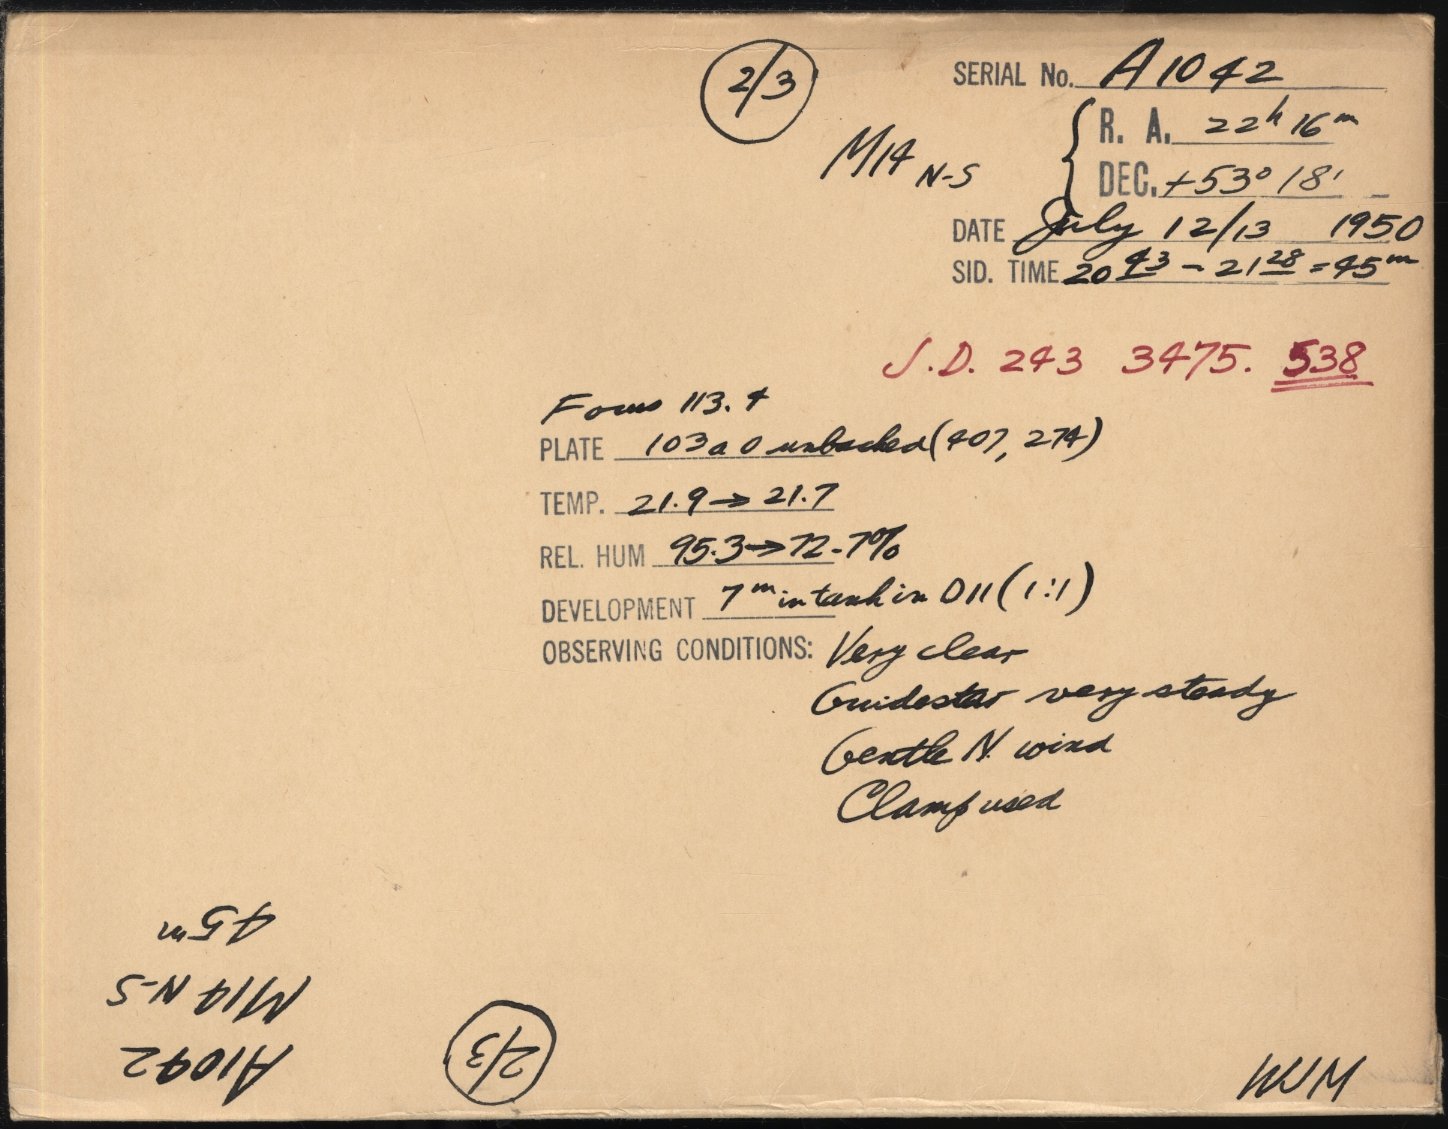 2/3
SERIAL No. A1042
M14 N-S
R. A. 22h 16m
DEC. +53° 18'
DATE July 12/13 1950
SID. TIME 20 43 - 21 28 = 45m
J.D. 243 3475. 538
Focus 113.4
PLATE 103a O unbacked (407, 274)
TEMP. 21.9 → 21.7
REL. HUM 95.3 → 72.7%
DEVELOPMENT 7m in tank in D11 (1:1)
OBSERVING CONDITIONS: Very clear
Guidestar very steady
Gentle N. wind
Clamp used
A1042
M14 N-S
45m
2/3